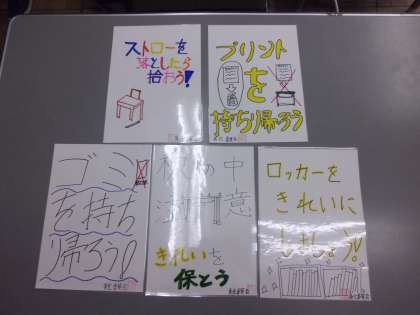 ストローを
落としたら
拾おう!
プリント
を
持ち帰ろう
ゴミ
を持ち
帰ろう!
机の中
注意
きれいを
保とう
ロッカーを
きれいに
しましょう!!